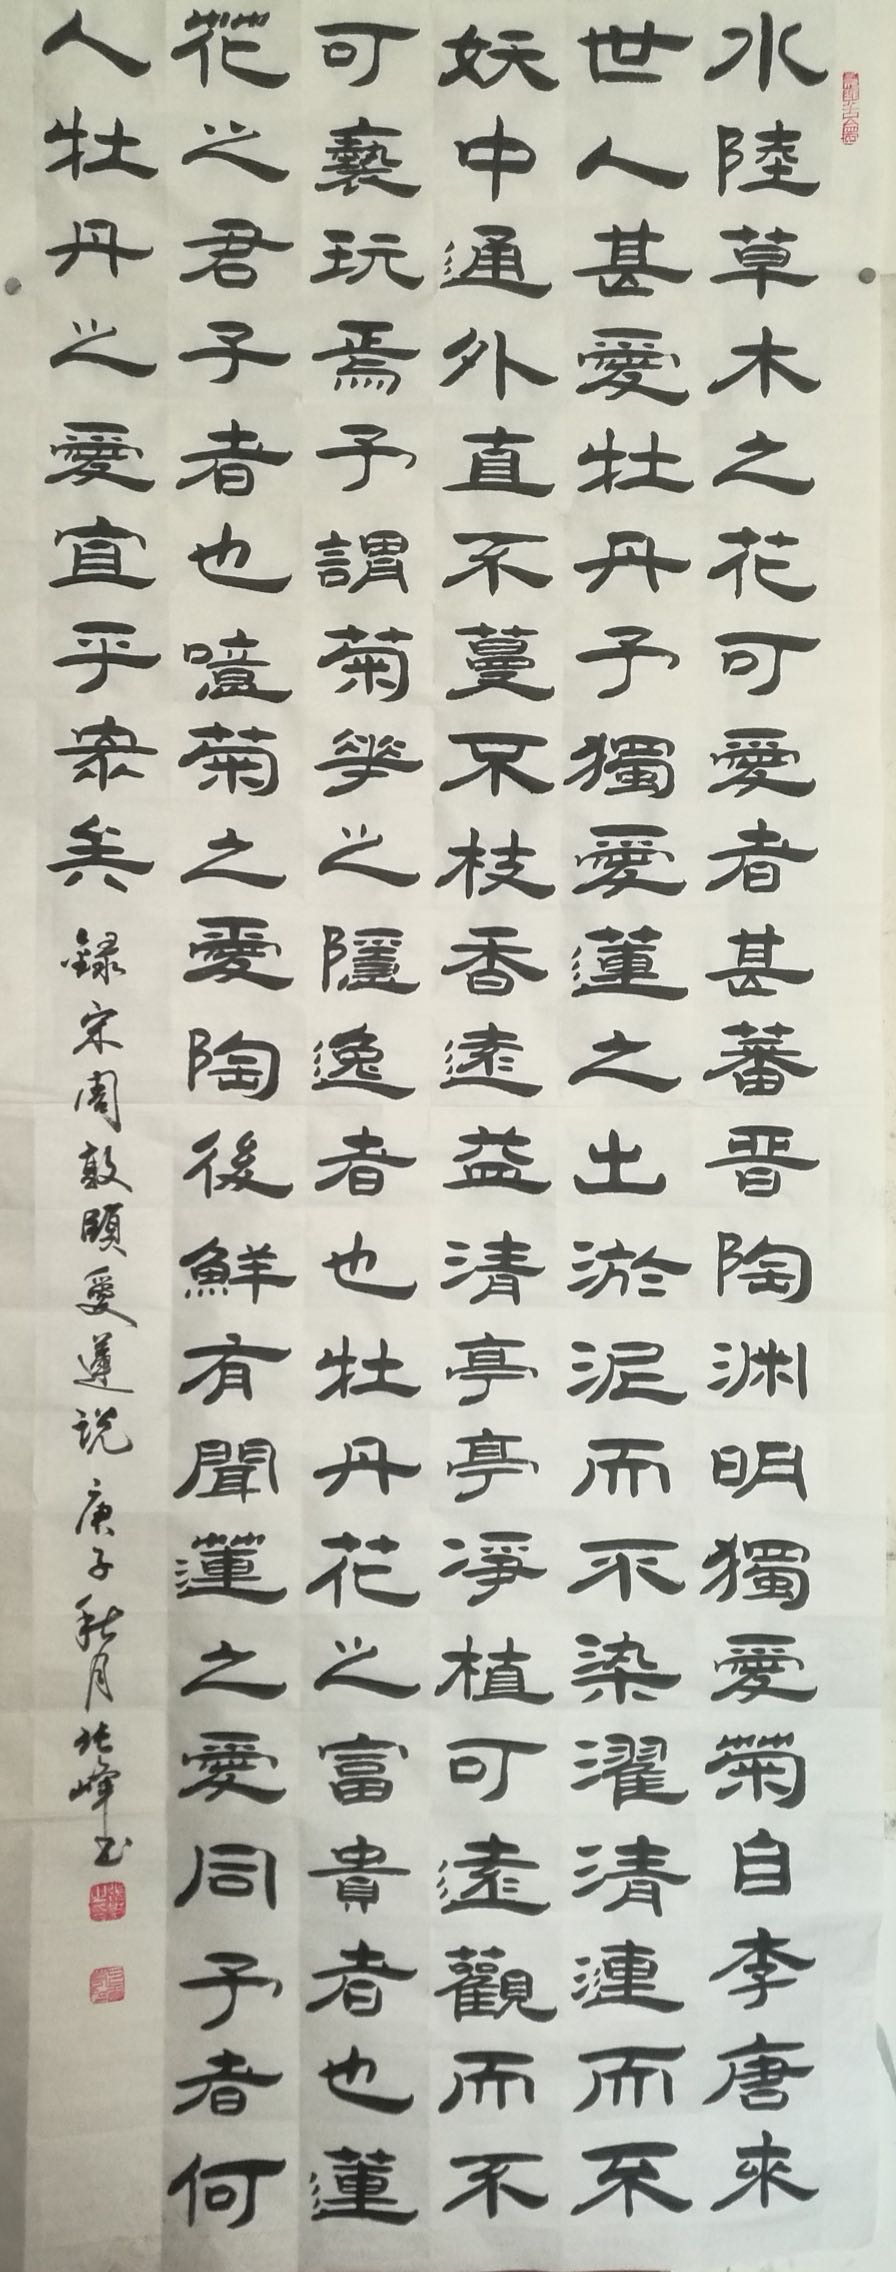 水陸草木之花可愛者甚蕃晋陶渊明獨愛菊自李唐来
世人甚愛牡丹予獨愛蓮之出淤泥而不染濯清漣而不
妖中通外直不蔓不枝香遠益清亭亭淨植可遠觀而不
可褻玩焉予謂菊華之隱逸者也牡丹花之富貴者也蓮
花之君子者也噫菊之愛陶後鮮有聞蓮之愛同予者何
人牡丹之愛宜乎衆矣 録宋周敦頤愛蓮説 庚子秋月 峰书